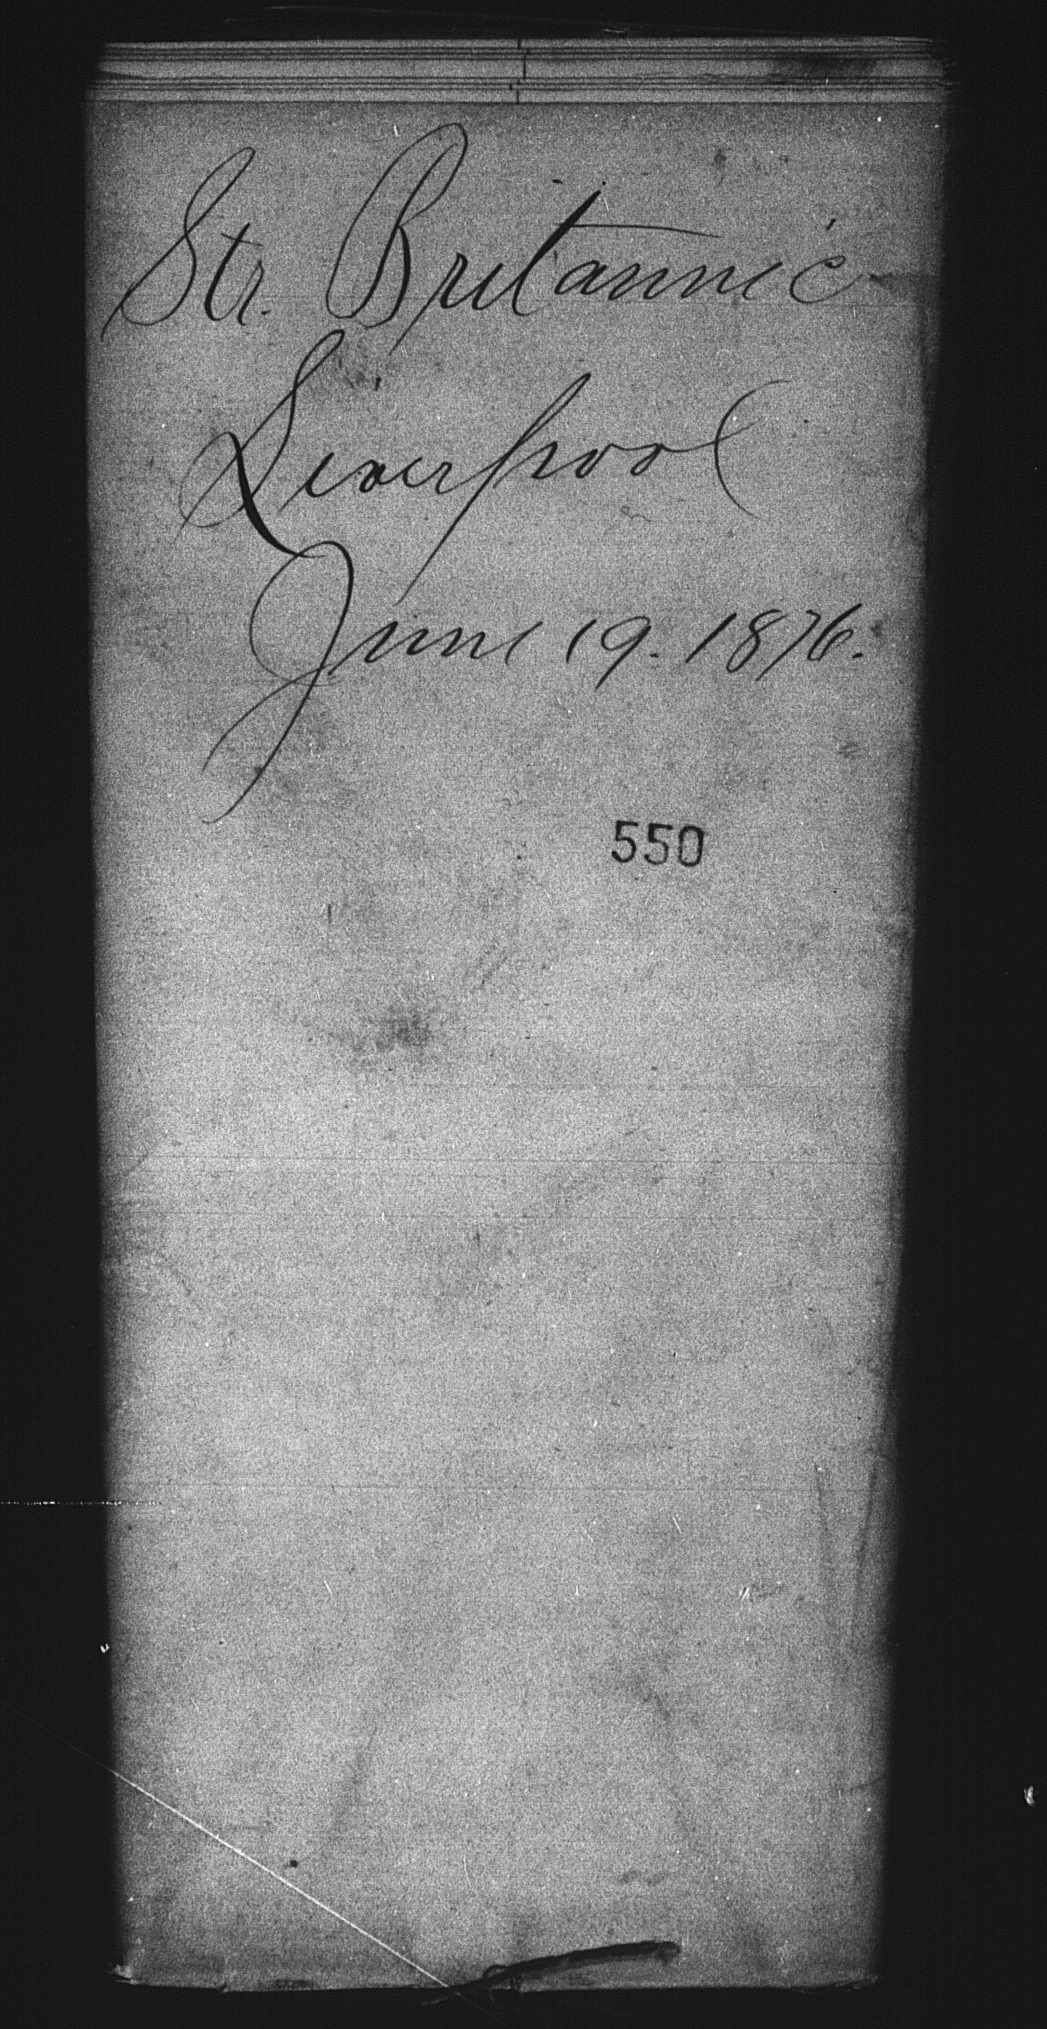 Str. Britannic
Liverpool
June 19. 1876.
550